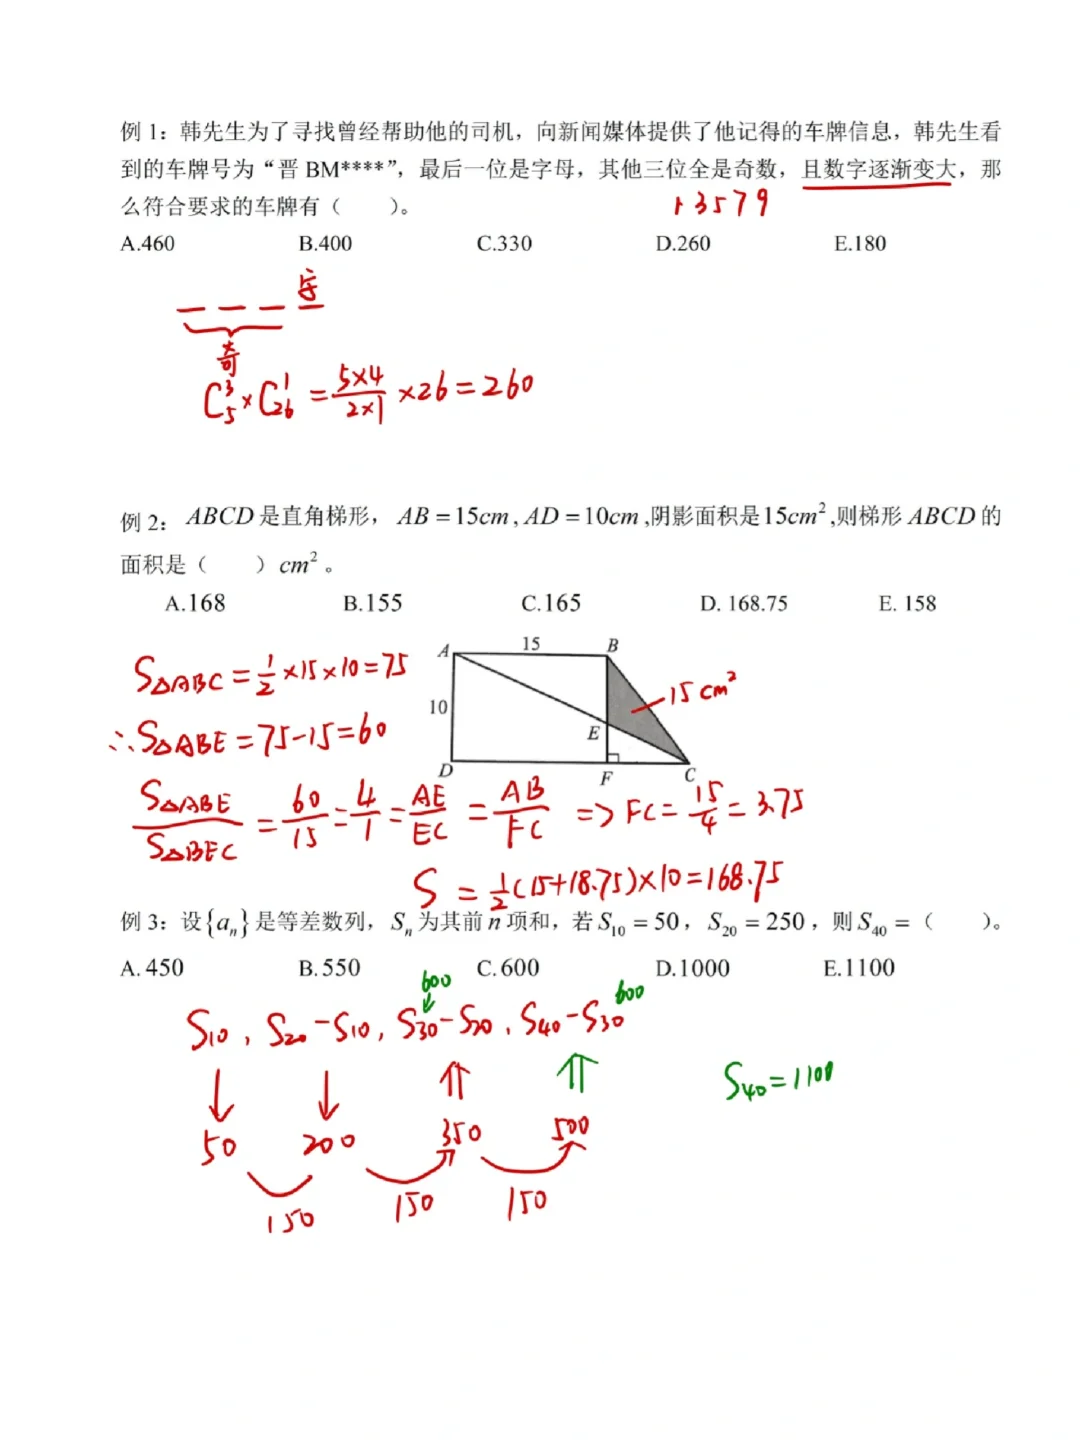 例 1：韩先生为了寻找曾经帮助他的司机，向新闻媒体提供了他记得的车牌信息，韩先生看
到的车牌号为“晋 BM****”，最后一位是字母，其他三位全是奇数，且数字逐渐变大，那
么符合要求的车牌有（　　）。
1 3 5 7 9
A.460 B.400 C.330 D.260 E.180
字
奇
C₅³×C₂₆¹ = 5×4/2×1 ×26=260
例 2：ABCD 是直角梯形， AB =15cm , AD =10cm ,阴影面积是15cm² ,则梯形 ABCD 的
面积是（　　）cm² 。
A.168 B.155 C.165 D. 168.75 E. 158
A 15 B
S△ABC = 1/2 ×15×10=75
15 cm²
10
∴S△ABE =75-15=60
E
D F C
S△ABE/S△BEC = 60/15 = 4/1 = AE/EC = AB/FC => FC= 15/4 = 3.75
S = 1/2(15+18.75)×10=168.75
例 3：设{aₙ}是等差数列， Sₙ 为其前 n 项和，若 S₁₀ = 50， S₂₀ = 250，则 S₄₀ =（　　）。
A. 450 B. 550 C. 600 D.1000 E.1100
600 600
S₁₀ , S₂₀ -S₁₀, S₃₀-S₂₀, S₄₀-S₃₀
S₄₀=1100
50 200 350 500
150 150 150